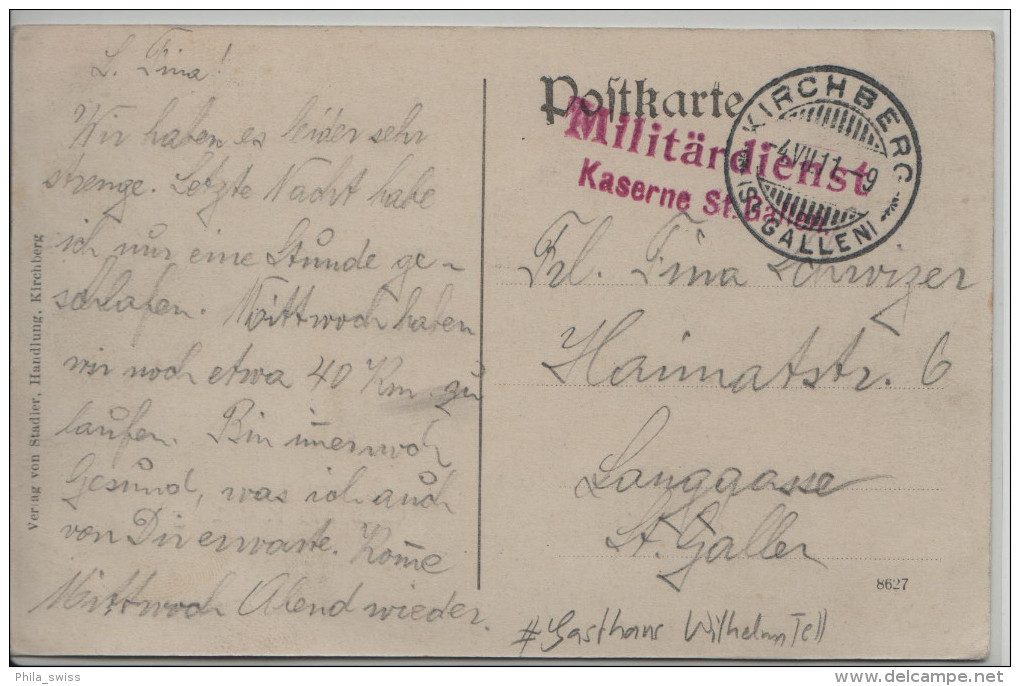 L. Tina!
Wir haben es leider sehr
strenge. Letzte Nacht habe
ich nur eine Stunde ge-
schlafen. Mittwoch haben
wir noch etwa 40 Km. zu
laufen. Bin im̅ernoch
Gesund, was ich auch
von Dir erwarte. Kom̅e
Mittwoch Abend wieder.
Verlag von Stadler, Handlung, Kirchberg
Postkarte
Militärdienst
Kaserne St. Gallen.
KIRCHBERG
4.VII.11.-9
(ST. GALLEN)
Frl. Tina Schwizer
Haimatstr. 6
Langgasse
St. Gallen
8627
#Gasthaus Wilhelm Tell
Phila_swiss
delcampe.net